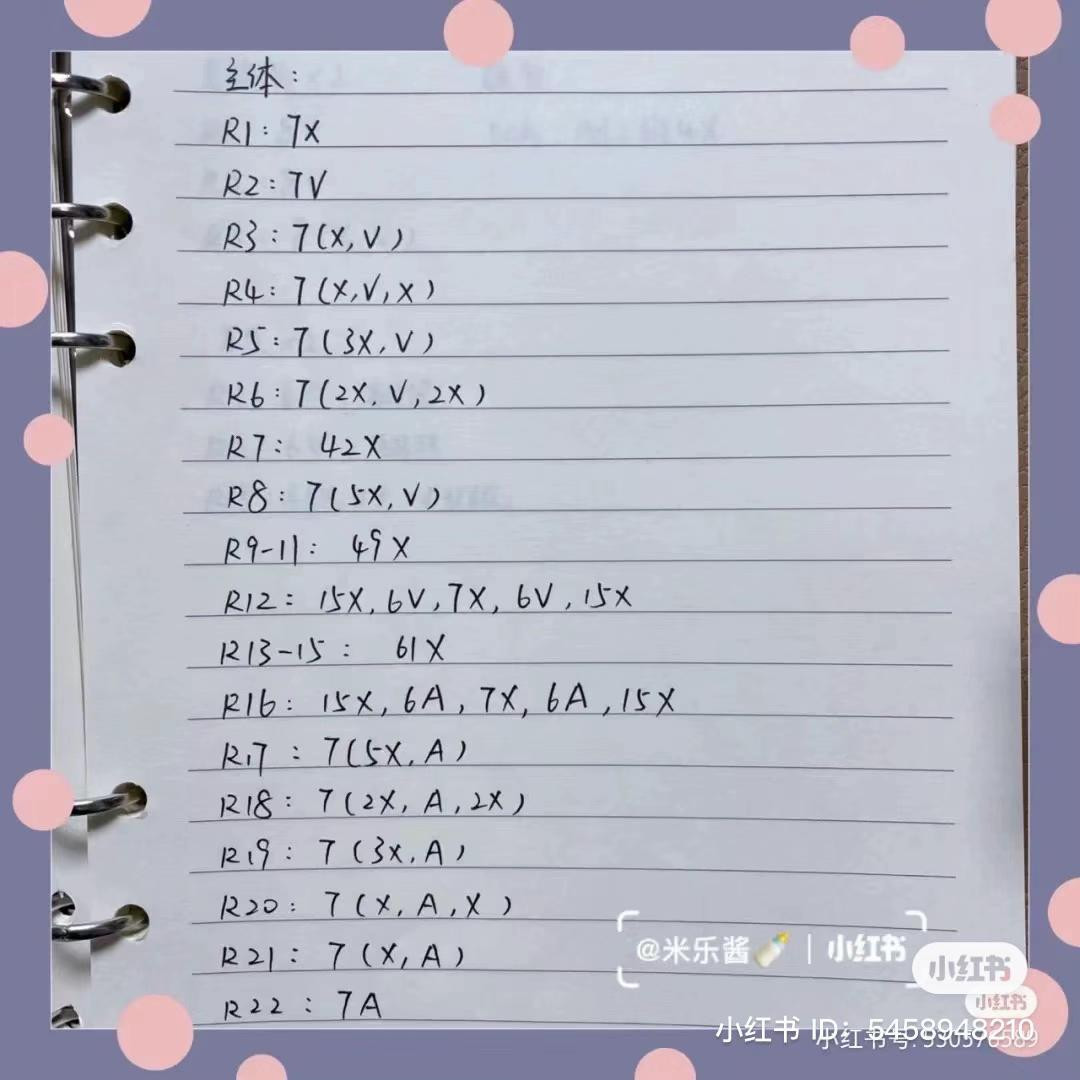 主体:
R1: 7X
R2: 7V
R3: 7(X,V)
R4: 7(X,V,X)
R5: 7(3X,V)
R6: 7(2X,V,2X)
R7: 42X
R8: 7(5X,V)
R9-11: 49X
R12: 15X,6V,7X,6V,15X
R13-15: 61X
R16: 15X,6A,7X,6A,15X
R17: 7(5X,A)
R18: 7(2X,A,2X)
R19: 7(3X,A)
R20: 7(X,A,X)
R21: 7(X,A)
R22: 7A
@米乐酱🍼 | 小红书
小红书
小红书
小红书 ID: 5458948210